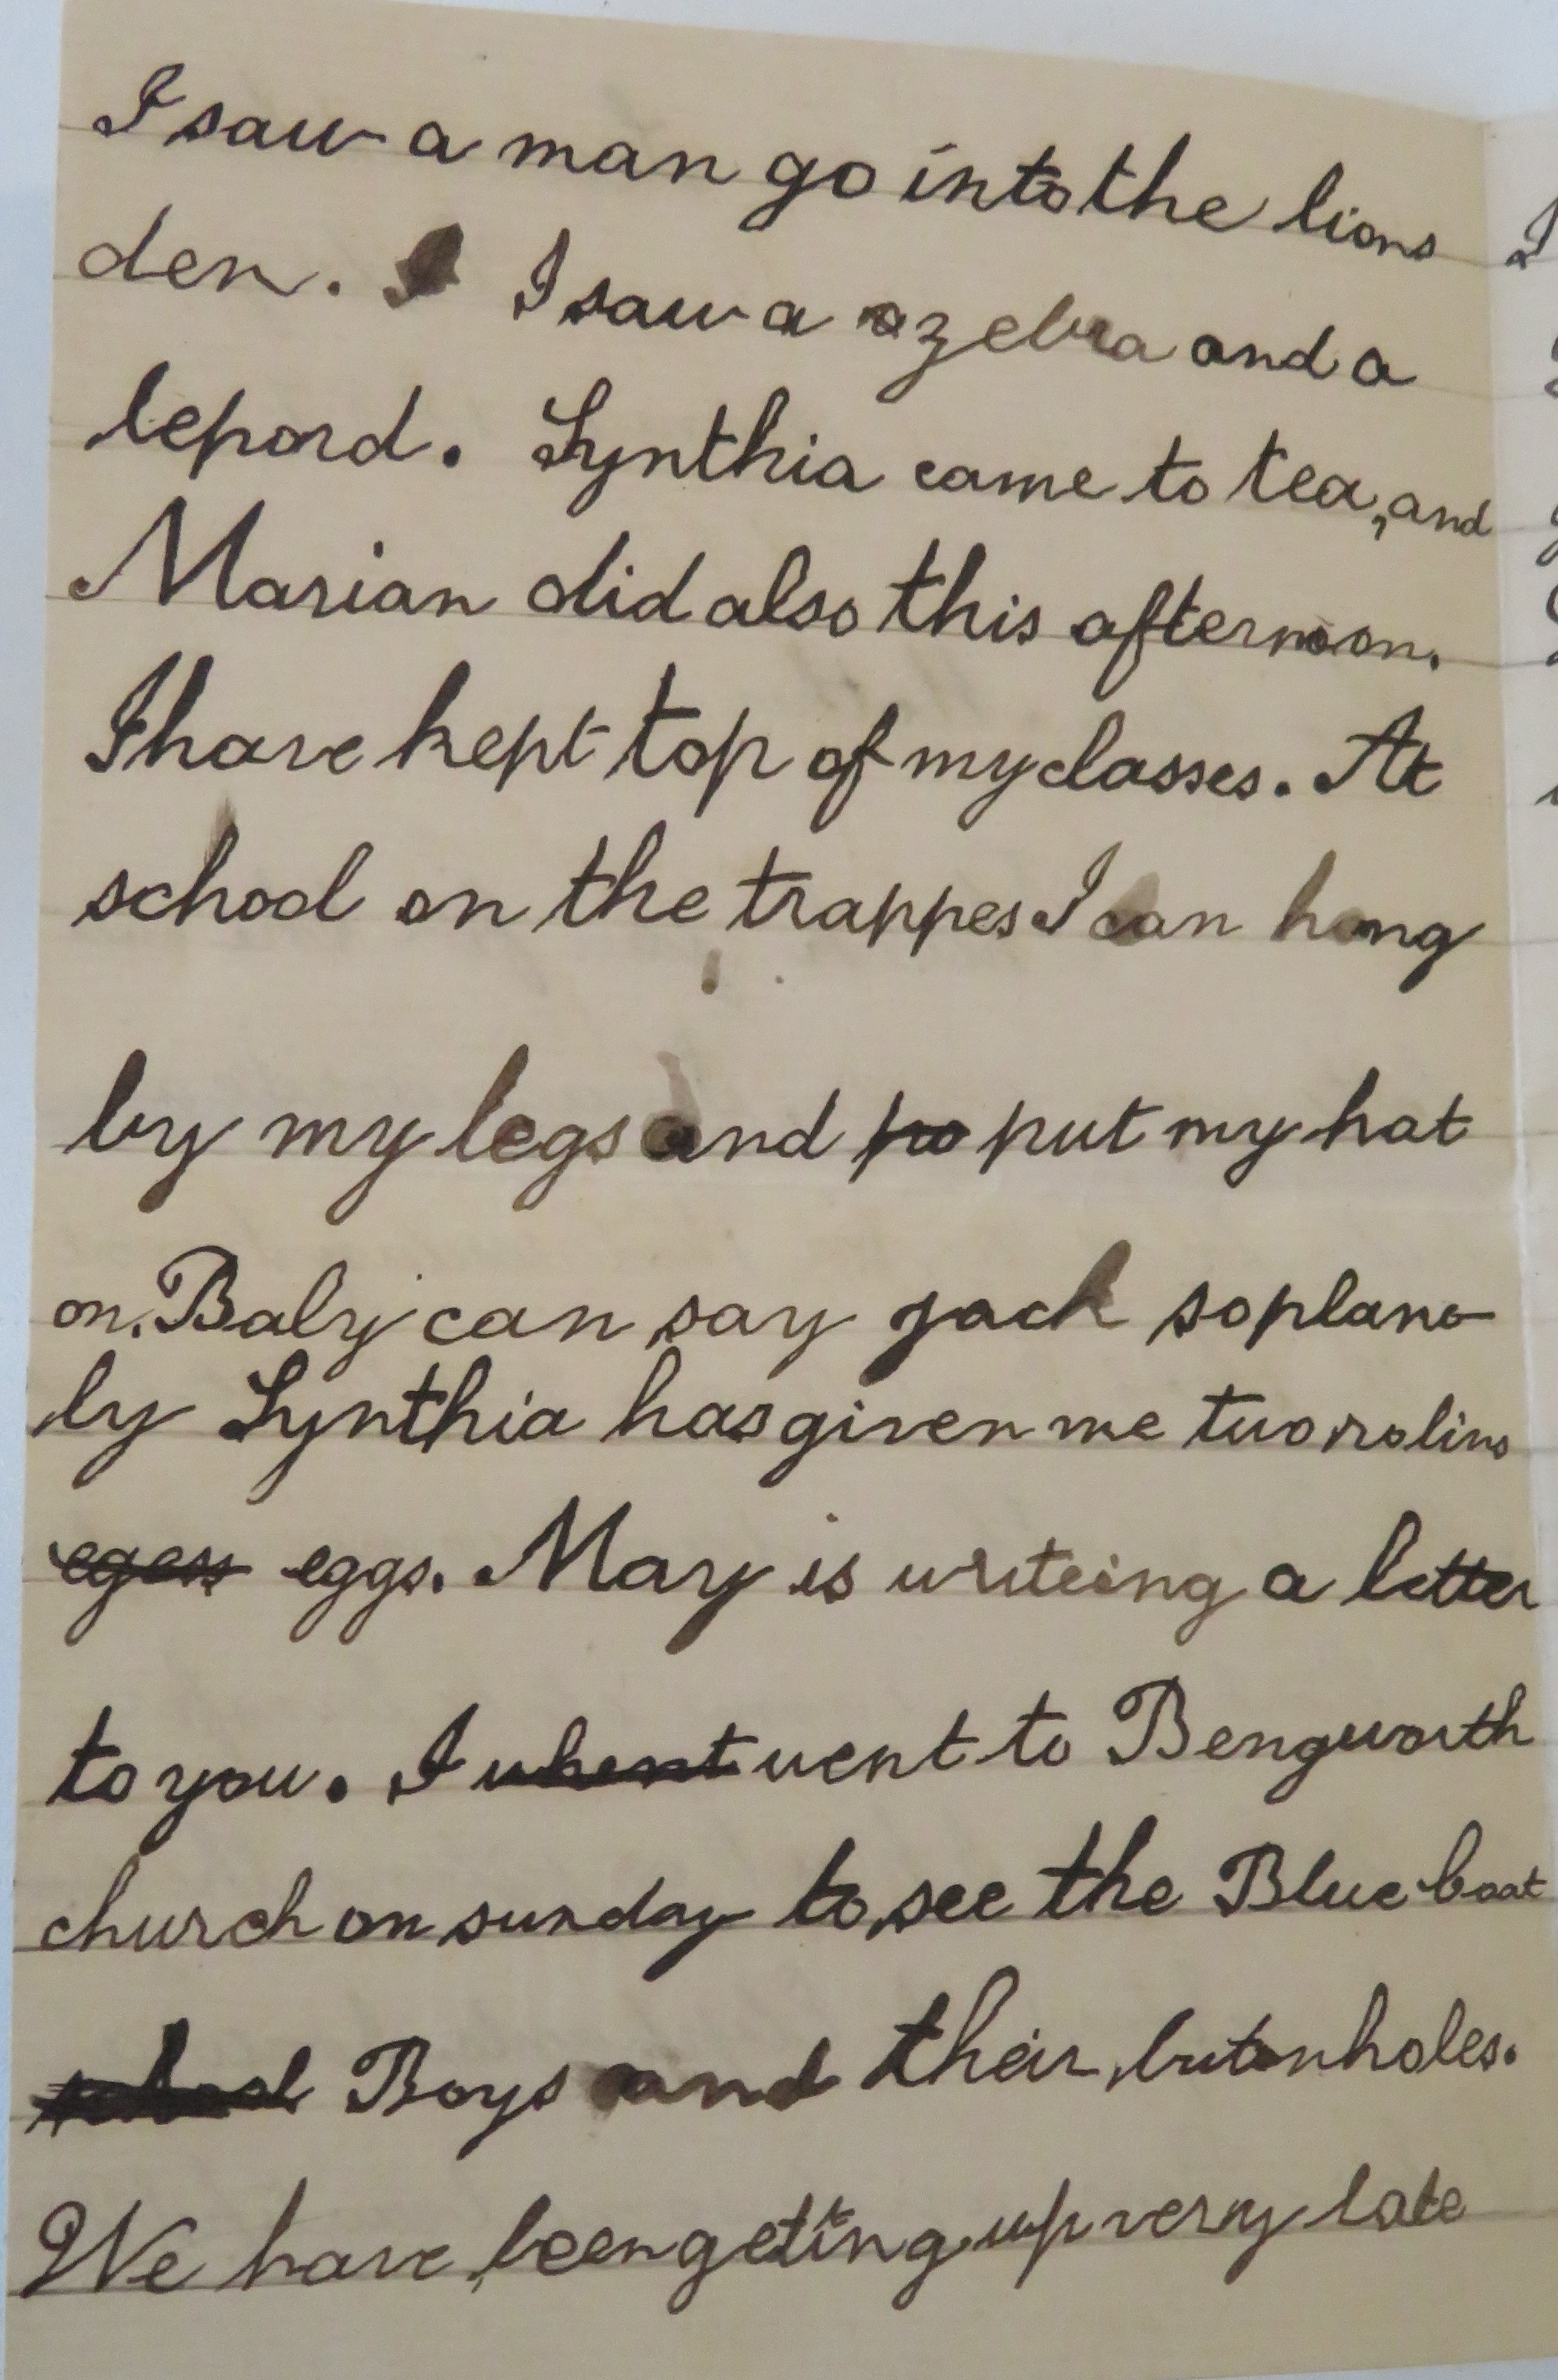 I saw a man go into the lions
den. I saw a zebra and a
lepord. Synthia came to tea, and
Marian did also this afternoon.
I have kept top of my classes. At
school on the trappes I can hang
by my legs and po put my hat
on. Baby can say jack so plane
ly Synthia has given me two violins
egess eggs. Mary is writeing a letter
to you. I whent went to Bengworth
church on sunday to see the Blue boat
school Boys and their butonholes.
We have been getting up very late